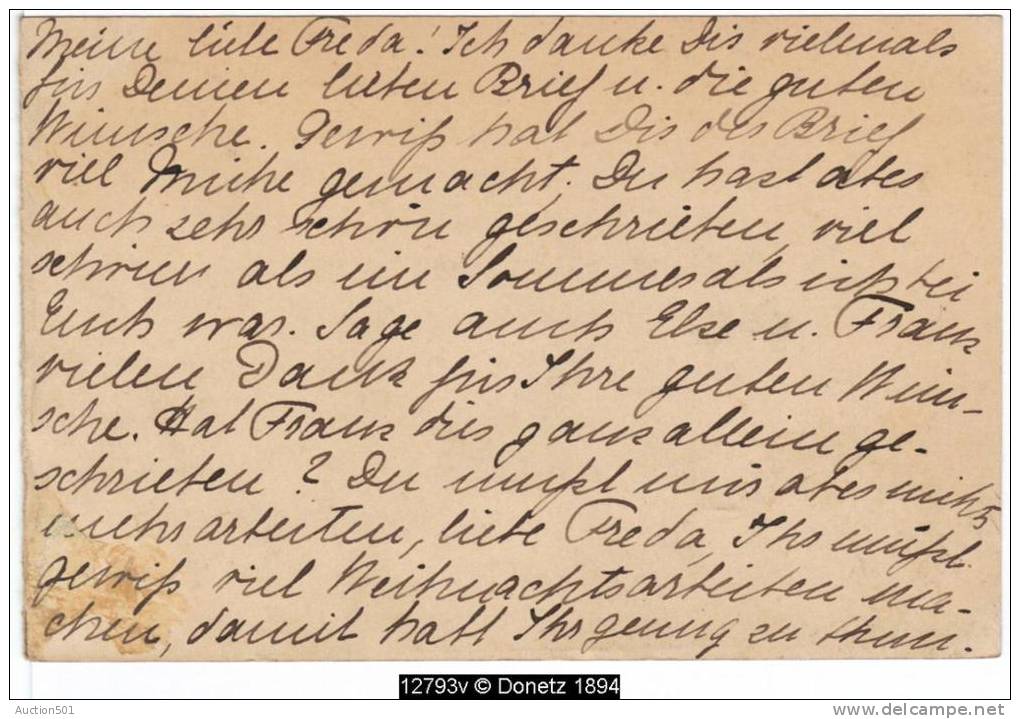 Meine liebe Freda! Ich danke Dir vielmals
für Deinen lieben Brief u. die guten
Wünsche. Gewiß hat Dir der Brief
viel Mühe gemacht. Du hast aber
auch sehr schön geschrieben, viel
schöner als im Sommer als ich bei
Euch war. Sage auch Else u. Franz
vielen Dank für Ihre guten Wün-
sche. Hat Franz dies ganz allein ge-
schrieben? Du mußt mir aber nichts
arbeiten, liebe Freda, Ihr müßt
gewiß viel Weihnachtsarbeiten ma-
chen, damit habt Ihr genug zu thun.
12793v © Donetz 1894
Auction501
www.delcampe.net